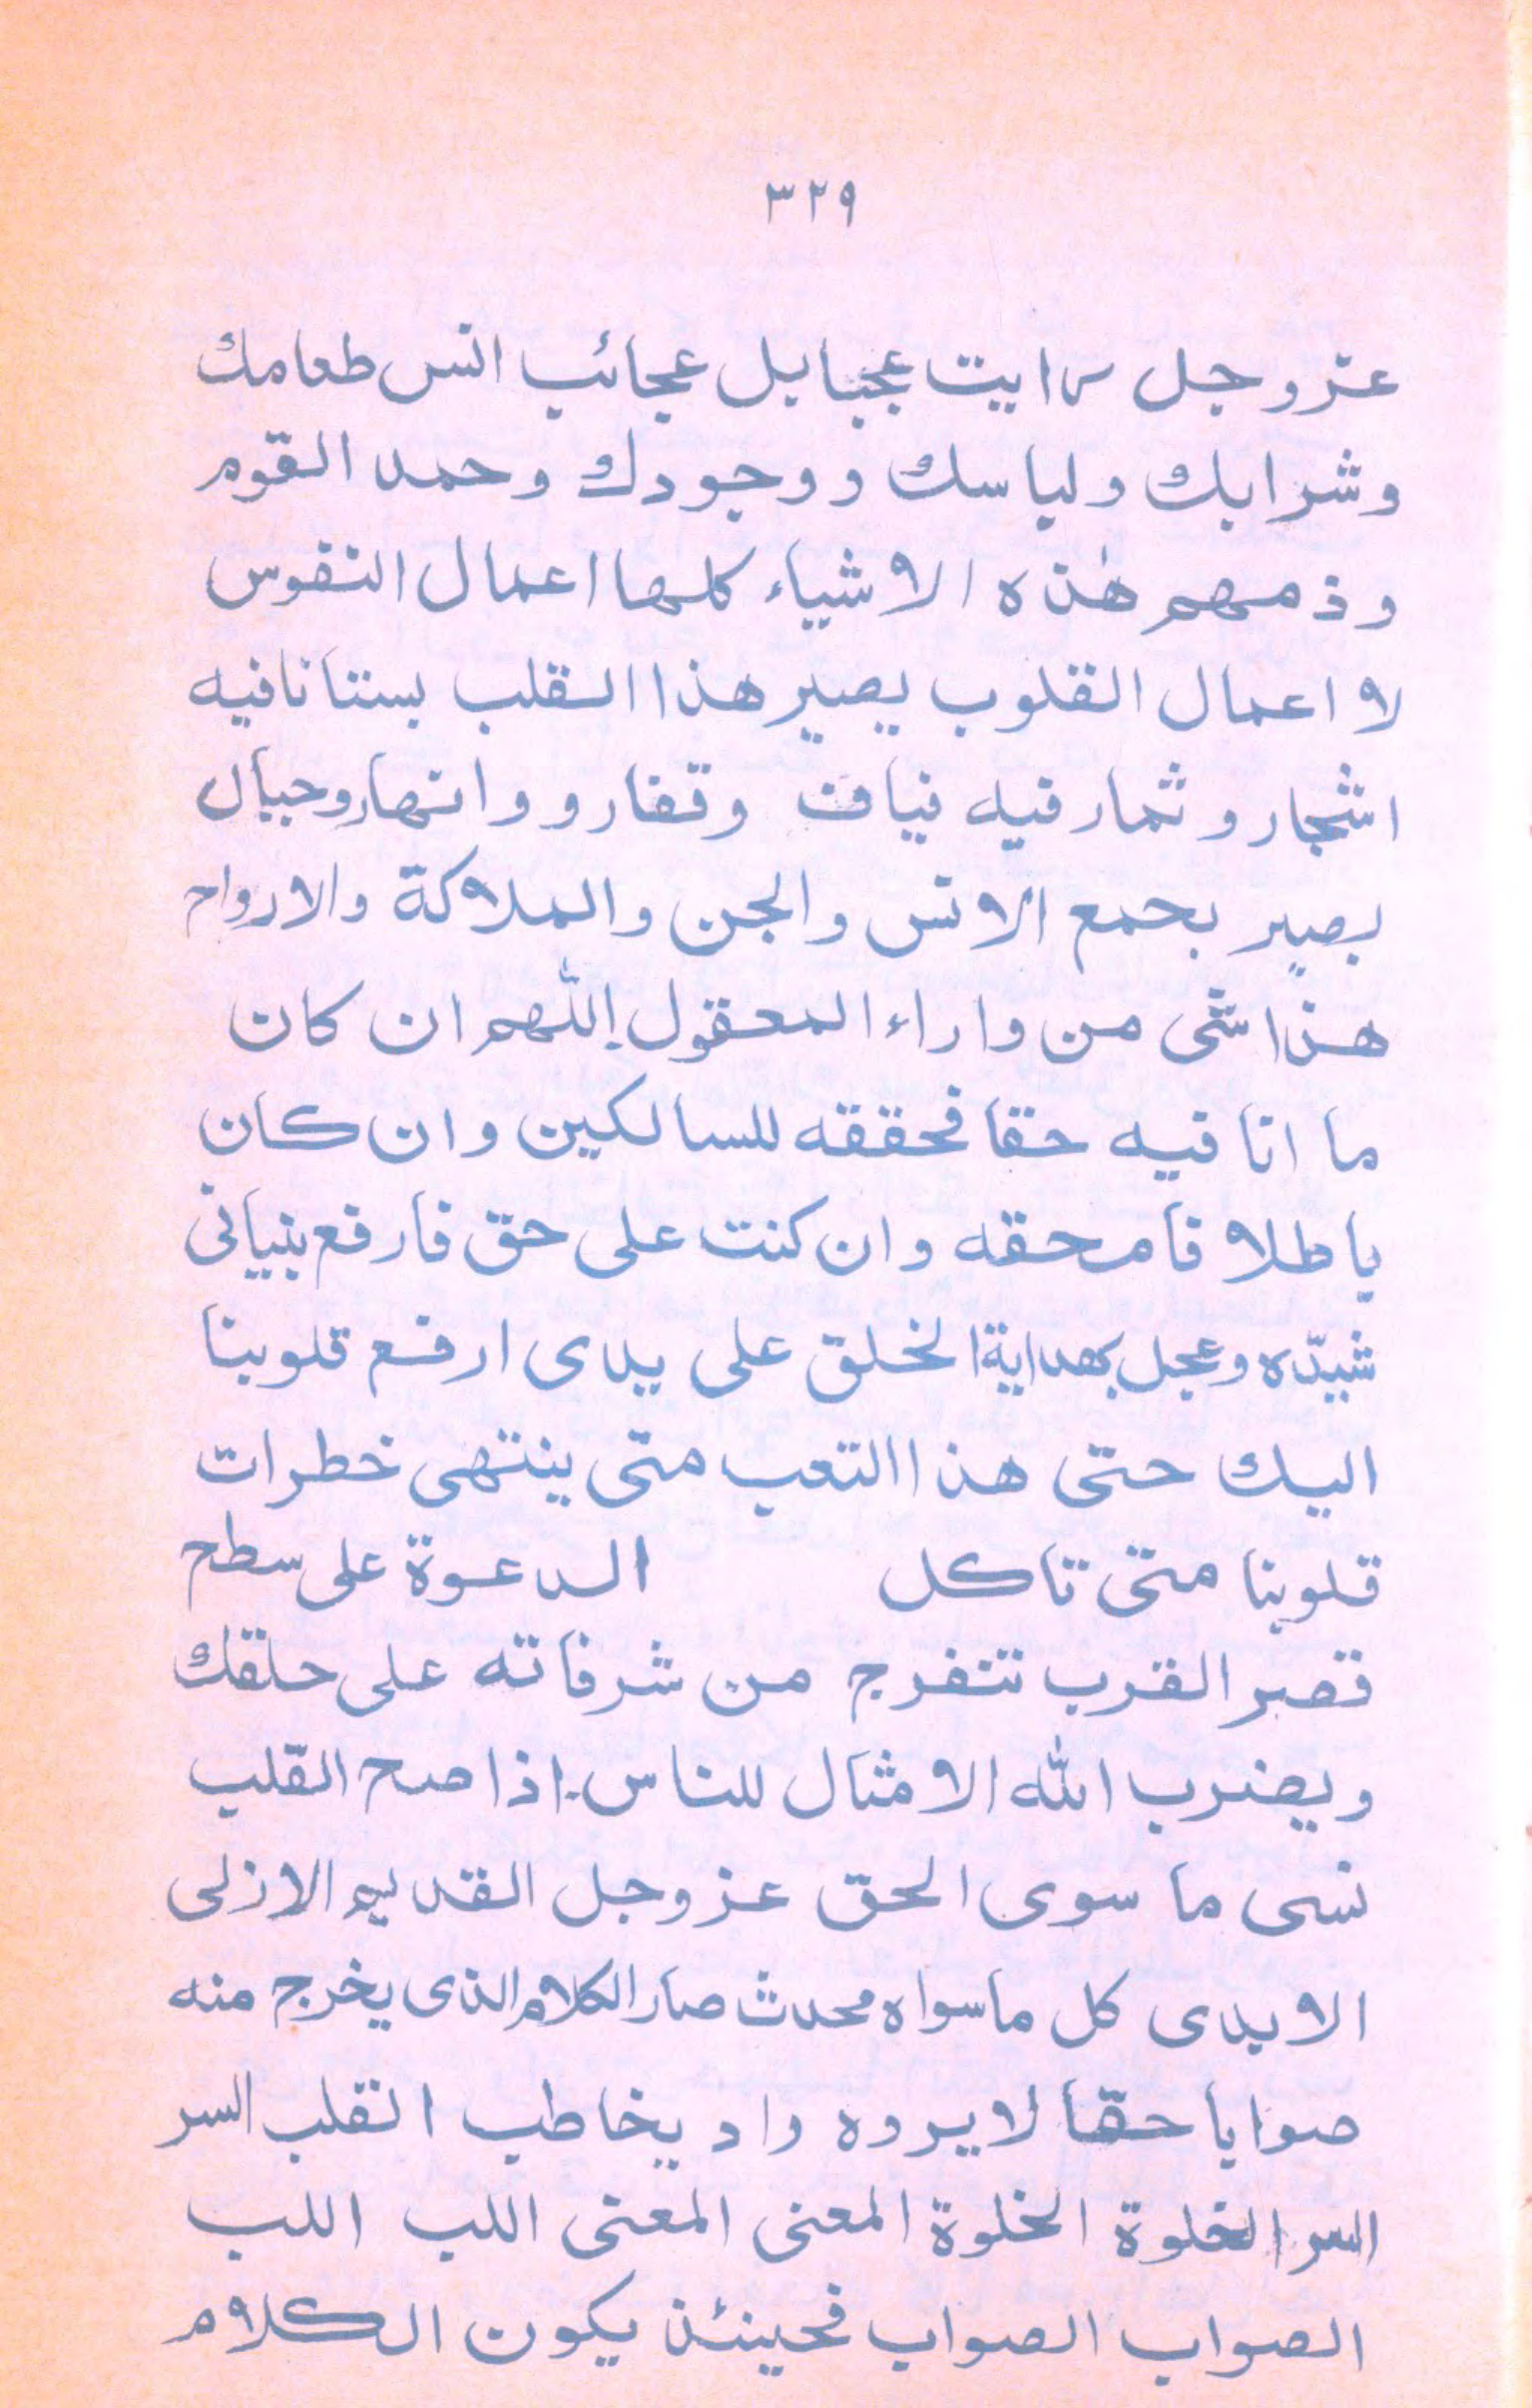 ٣٢٩
عز وجل رايت عجبا بل عجائب انس طعامك
وشرابك ولباسك ووجودك وحمد القوم
وذمهم هٰذه الاشياء كلها اعمال النفوس
لا اعمال القلوب يصير هذا القلب بستانا فيه
اشجار وثمار فيه فيافت وقفار و وانهار وجبال
بصير بحمع الانس والجن والملاكة والارواح
هذا شى من واراء المعقول اللّٰهم ان كان
ما انا فيه حقا فحققه للسالكين وان كان
باطلا فامحقه وان كنت على حق فارفع بنيانى
شيّده وعجل بهداية الخلق على يدى ارفع قلوبنا
اليك حتى هذا التعب متى ينتهى خطرات
قلوبنا متى تاكل الدعوة على سطح
قصر القرب تتفرج من شرفاته على حلقك
ويضرب الله الامثال للناس. اذا صح القلب
نسى ما سوى الحق عز وجل القديم الازلى
الايدى كل ماسواه محدث صار الكلام الذى يخرج منه
صوابا حقّا لا يروه واد يخاطب القلب السر
السر الخلوة الخلوة المعنى المعنى اللب اللب
الصواب الصواب فحينئذ يكون الكلام